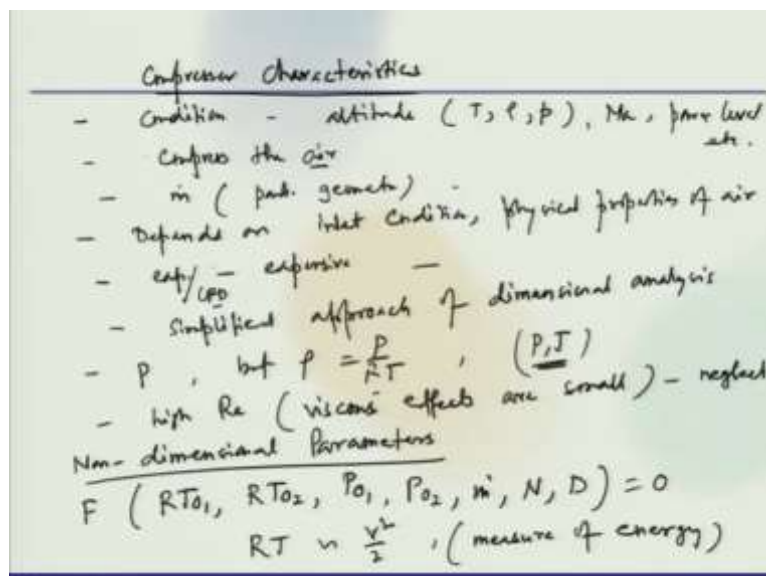 Compressor Characteristics
- Condition - altitude (T, ρ, p), Ma, power level
etc.
- Compress the air
- ṁ (part. geometr)
- Depends on inlet Condition, physical properties of air
- exp/CFD - expensive -
- Simplified approach of dimensional analysis
- ρ, but ρ = P/RT, (P,T)
- high Re (viscous effects are small) - neglect
Non-dimensional Parameters
F (RT₀₁, RT₀₂, P₀₁, P₀₂, ṁ, N, D) = 0
RT ~ V²/2, (measure of energy)